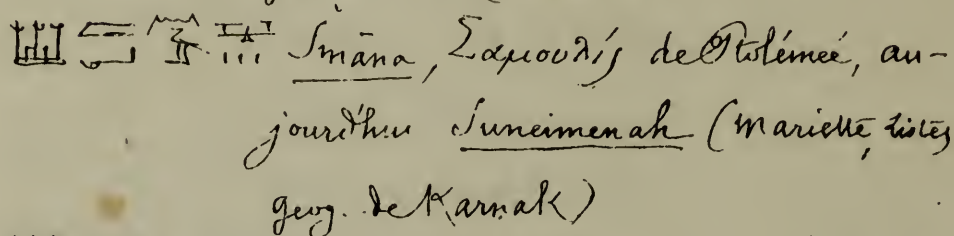 Smāna, Σαμουλίς de Ptolémeé, au-
jourdhu Suneimenah (Mariette, listes
geog. de Karnak)